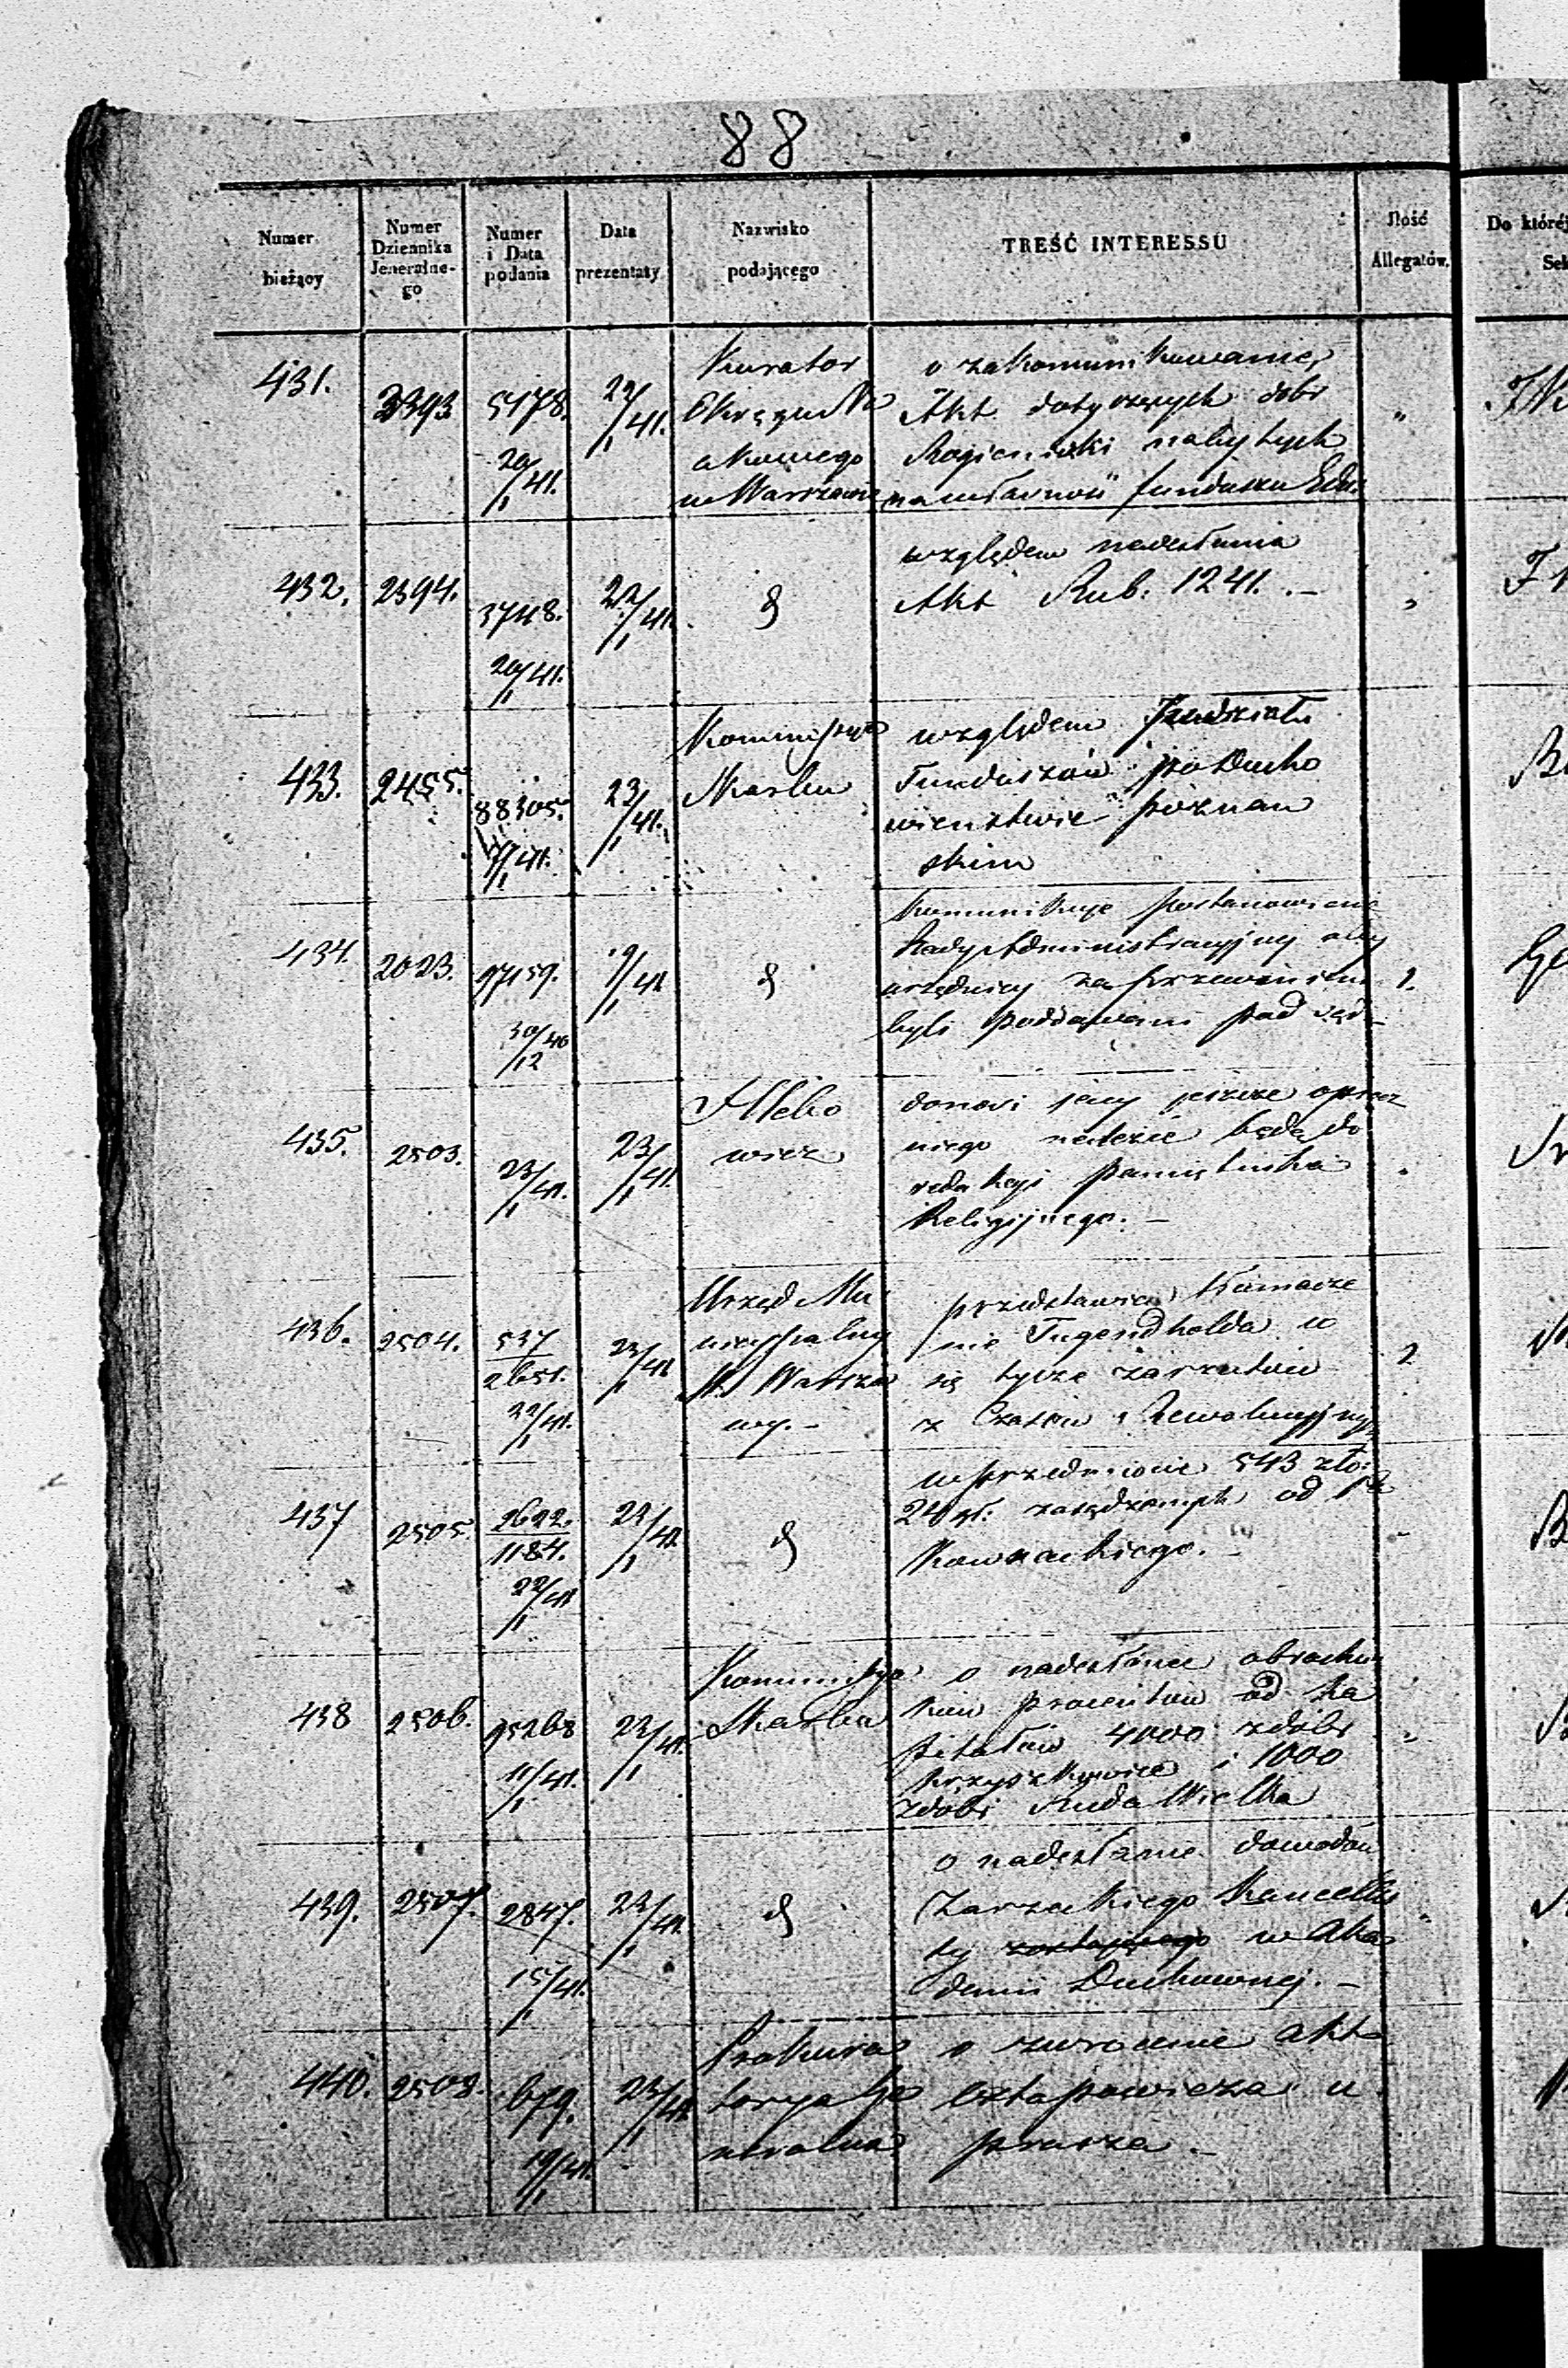 88
Numer bieżący
Numer Dziennika Jeneralne-go
Numer i Data podania
Data prezentaty
Nazwisko podającego
TREŚĆ INTERESSU
Ilość Allegatów.
Do któréj
431.
2393
5178.
20/1 41.
22/1 41.
Kurator
Okręgu Na
ukowego
w Warszawie
o zakomunikowanie
Akt dotyczących dobr
nabytych
na własność funduszu Edu.
"
432.
2394.
3748.
20/1 41.
22/1 41.
względem nadesłania
Akt Rub. 1241. –
"
433.
2455.
88305.
23/1 41.
Kommissya
Skarbu
względem
Funduszów po Ducho
wieństwie poznań
skim
434.
2023.
97159.
30/12 40
19/1 41
Komunikuje postanowienie
Rady Administracyjnej aby
urzędnicy za
byli poddawani pod sąd –
1.
435.
2503.
23/1 41.
23/1 41.
Hlebo
wicz
donosi jacy jeszcze oprócz
niego należeć będą do
redakcyi pamiętnika
Religijnego. –
436.
2504.
537
2651.
22/1 41.
23/1 41
Urząd Mu
nicypalny
M. Warsza
wy. –
przedstawia tłumacze
nie Tugendholda co
się tycze zarzutów
z Czasów Rewolucyjnych
2
437
2505.
2622.
1184.
22/1 41
23/1 41
w przedmiocie 543 zło:
24 gr. zasądzonych od
Kownackiego. –
438
2506.
95268
11/1 41.
23/1 41.
Kommissya
Skarbu
o nadesłanie obrachun
ków procentów od Ka
pitałów 4000 z dóbr
Krzyszkowice i 1000
z dóbr Ruda Wielka
439.
2507.
2847.
15/1 41.
23/1 41.
o nadesłanie dowodów
Zarzeckiego Kancelli
sty zostającego w Aka
demii Duchownej. –
440.
2508.
679.
19/1 41.
23/1 41
Prokura
torya Je
neralna
o zwrócenie Akt
u
prasza. –